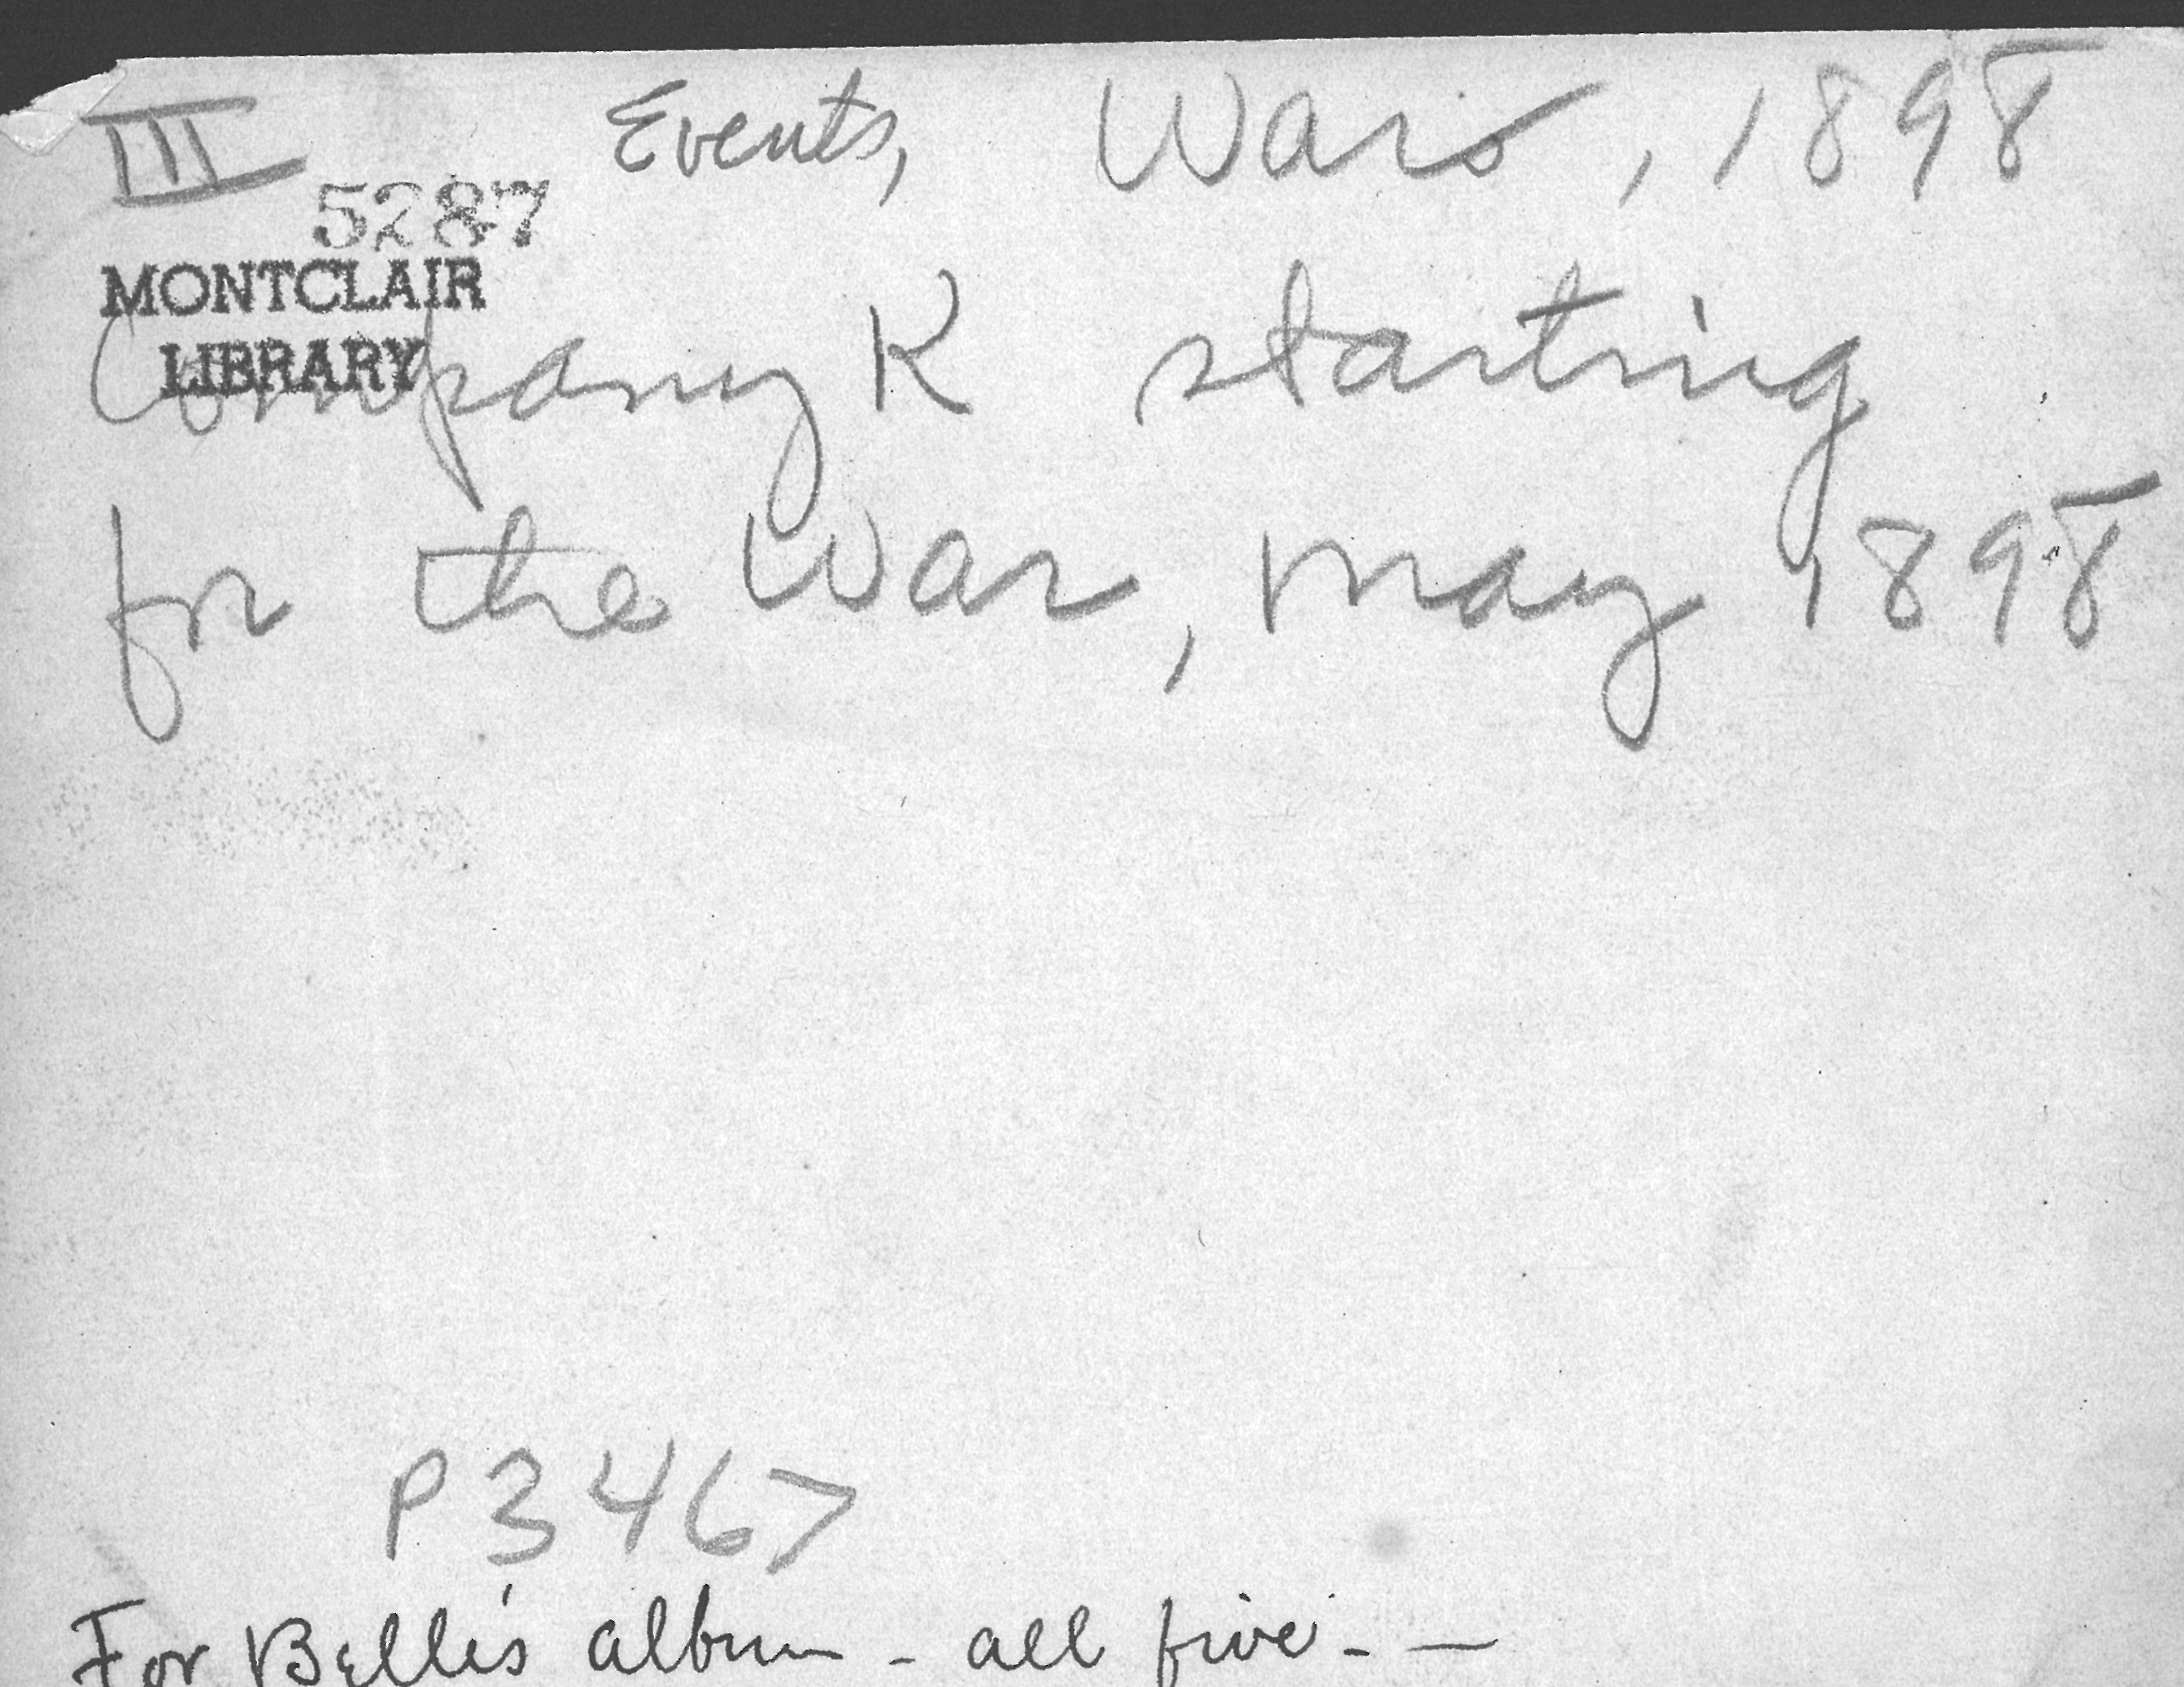 III Events, Wars, 1898
5287
MONTCLAIR
LIBRARY
Company K starting
for the War, May 1898
P3467
For Belle's album - all five - —